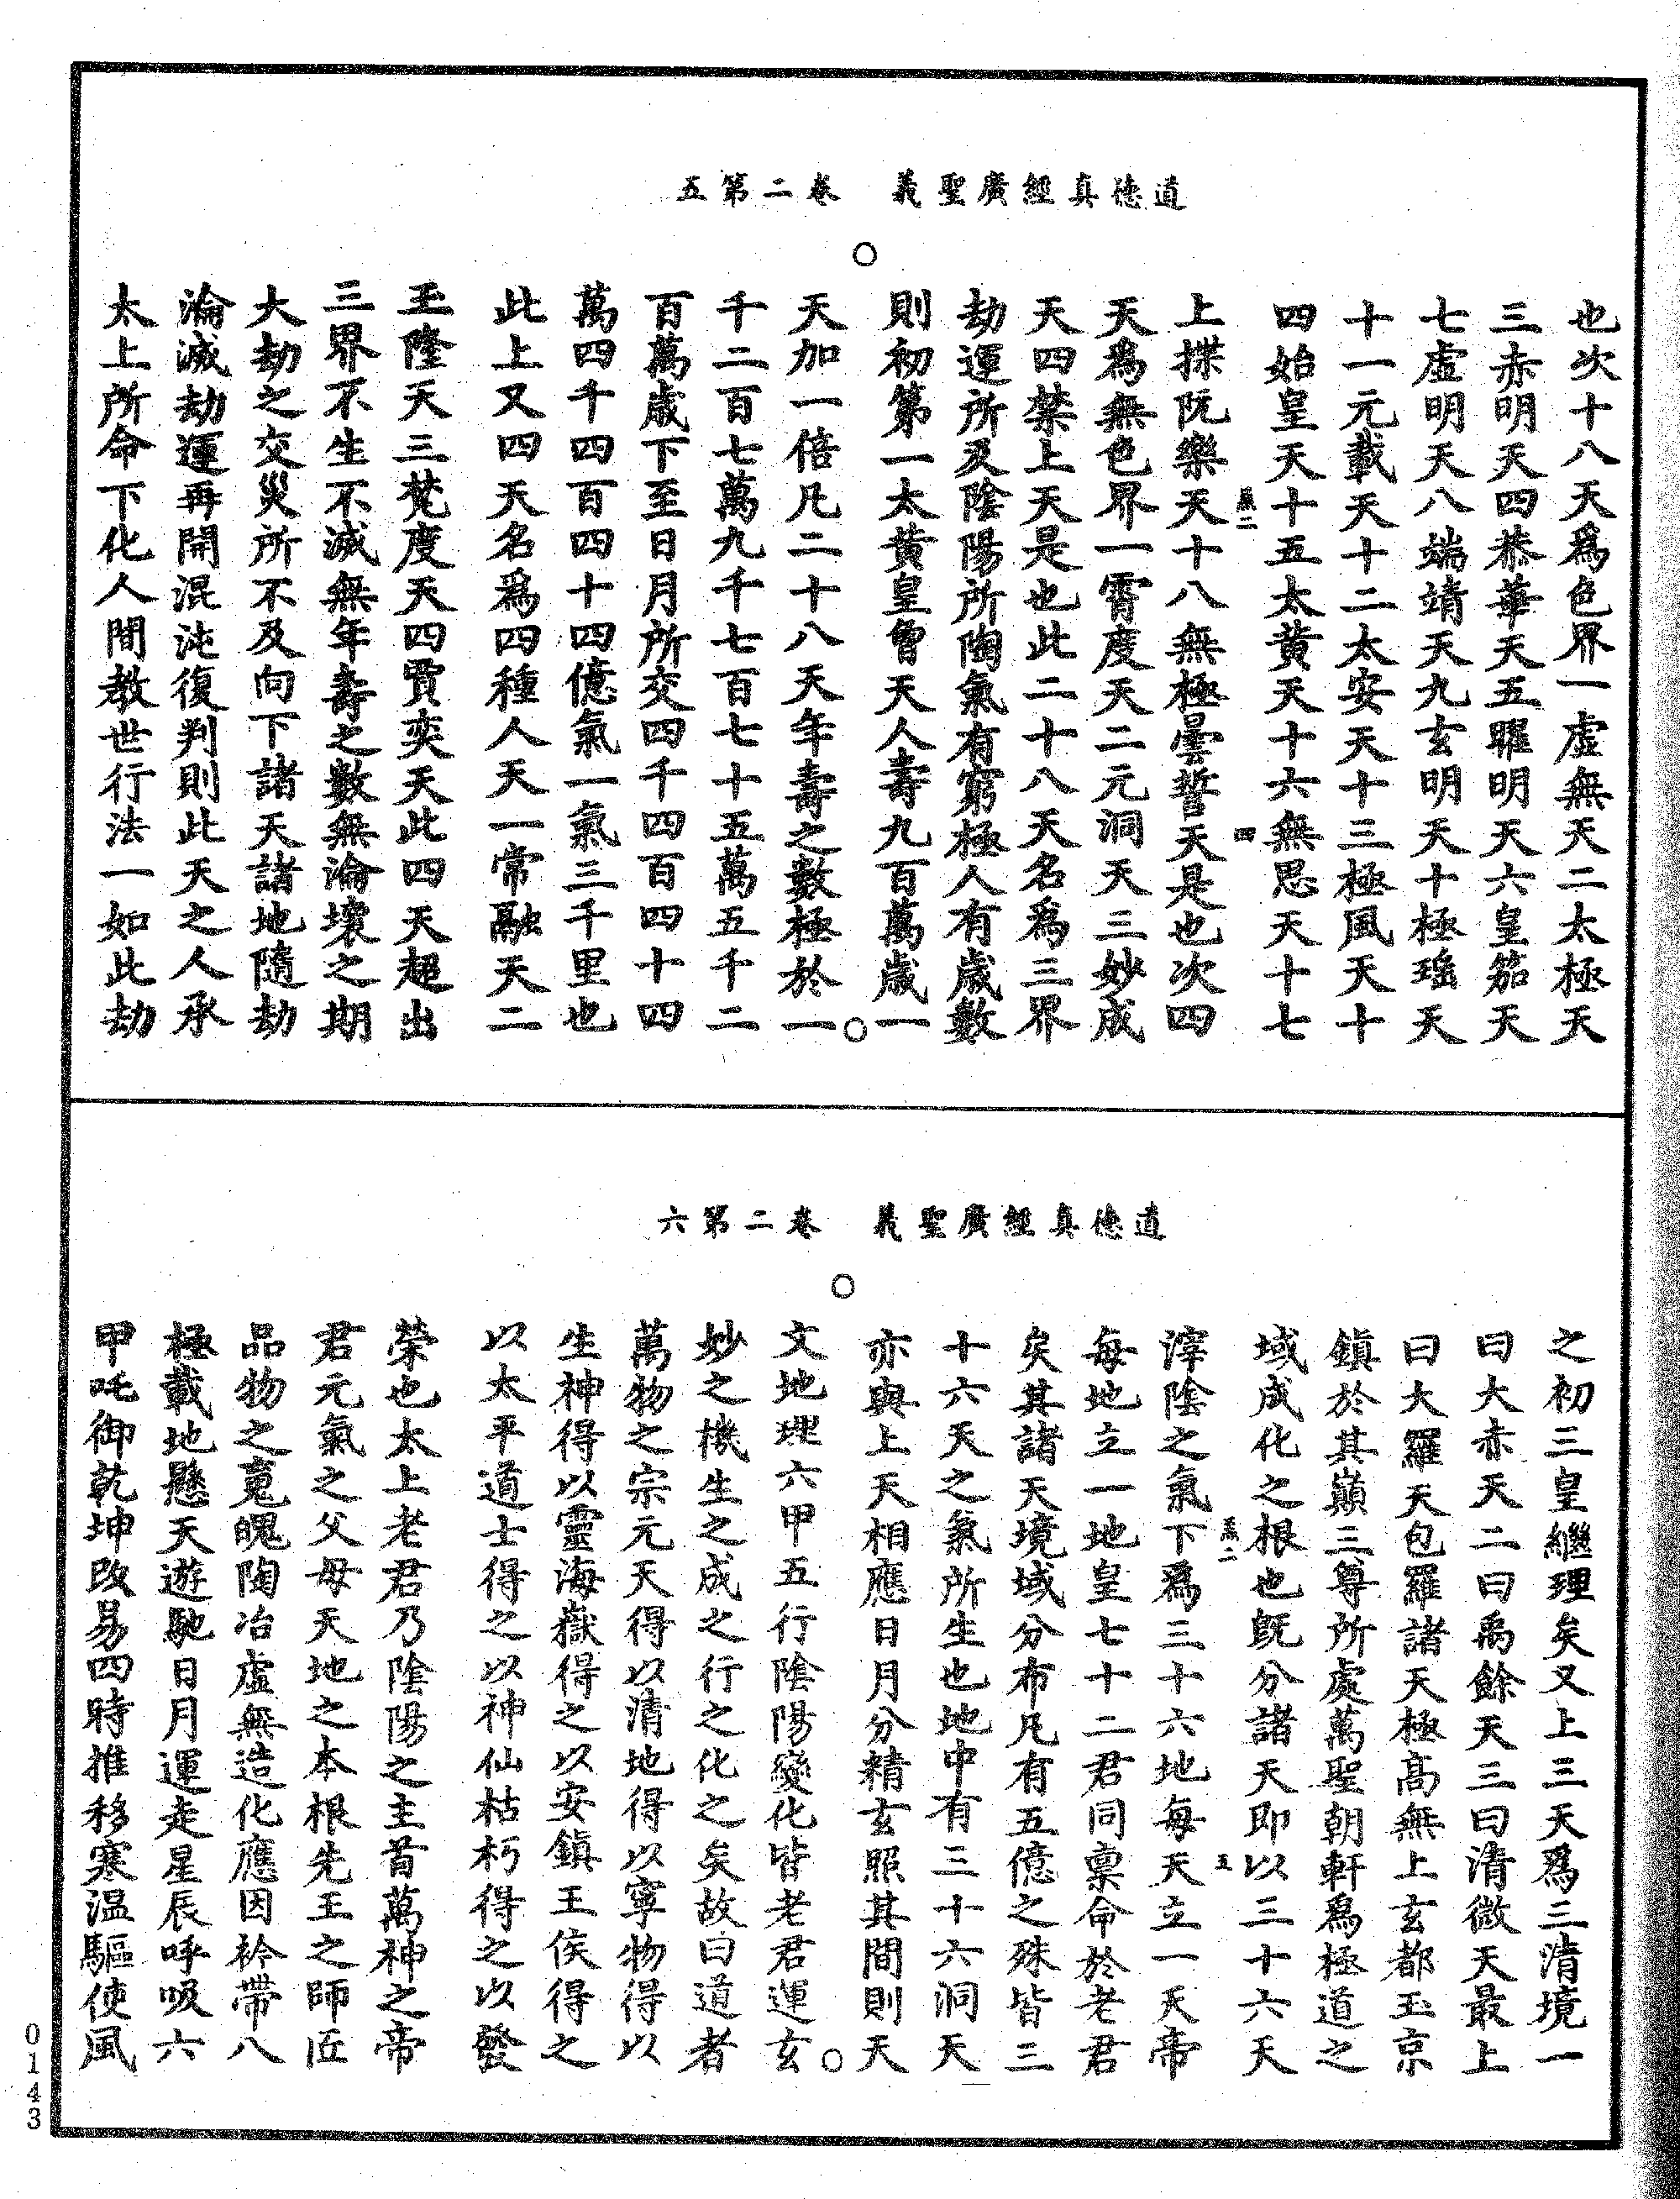 道德真經廣聖義　卷二第五
也次十八天爲色界一虛無天二太極天
三赤明天四恭華天五曜明天六皇笳天
七虛明天八端靖天九玄明天十極瑤天
十一元載天十二太安天十三極風天十
四始皇天十五太黃天十六無思天十七
上揲阮樂天十八無極曇誓天是也次四
天爲無色界一霄度天二元洞天三妙成
天四禁上天是也此二十八天名爲三界
劫運所及陰陽所陶氣有窮極人有歲數
則初第一太黃皇曾天人壽九百萬歲一
天加一倍凡二十八天年壽之數極於一
千二百七萬九千七百七十五萬五千二
百萬歲下至日月所交四千四百四十四
萬四千四百四十四億氣一氣三千里也
此上又四天名爲四種人天一常融天二
玉隆天三梵度天四賈奕天此四天超出
三界不生不滅無年壽之數無淪壞之期
大劫之交災所不及向下諸天諸地隨劫
淪滅劫運再開混沌復判則此天之人承
太上所命下化人間教世行法一如此劫
道德真經廣聖義　卷二第六
之初三皇繼理矣又上三天爲三清境一
曰大赤天二曰禹餘天三曰清微天最上
曰大羅天包羅諸天極高無上玄都玉京
鎮於其巔三尊所處萬聖朝軒爲極道之
域成化之根也既分諸天即以三十六天
滓陰之氣下爲三十六地每天立一天帝
每地立一地皇七十二君同稟命於老君
矣其諸天境域分布凡有五億之殊皆三
十六天之氣所生也地中有三十六洞天
亦與上天相應日月分精玄照其間則天
文地理六甲五行陰陽變化皆老君運玄
妙之機生之成之行之化之矣故曰道者
萬物之宗元天得以清地得以寧物得以
生神得以靈海嶽得之以安鎮王侯得之
以太平道士得之以神仙枯朽得之以發
榮也太上老君乃陰陽之主首萬神之帝
君元氣之父母天地之本根先王之師匠
品物之䰟魄陶冶虛無造化應因衿帶八
極載地懸天遊馳日月運走星辰呼吸六
甲叱御乾坤改易四時推移寒温驅使風
0143